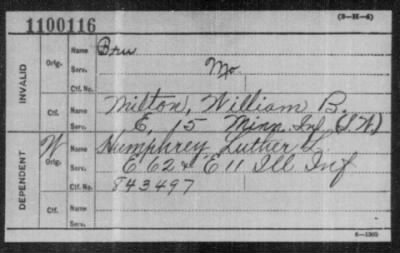 (3-M-4)
1100116
INVALID
Orig.
Name
Serv. Mo.
Ctf. No.
Ctf.
Name Milton, William B.
Serv. E, 15 Minn. Inf (S.W.)
DEPENDENT
W
Orig.
Name Humphrey Luther L.
Serv. E 62 & E 11 Ill Inf
Ctf. No. 843497
Ctf.
Name
Serv.
6-1309